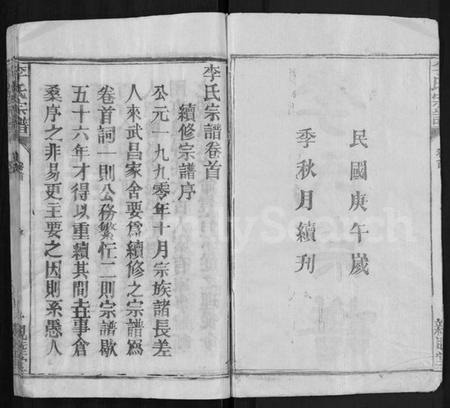 民國庚午歲
季秋月續刊
李氏宗譜卷首
續修宗譜序
公元一九九零年十月宗族諸長差
人來武昌家舍要爲續修之宗譜爲
卷首詞一則公務繁忙二則宗譜歇
五十六年才得以重續其間
桑序之非易更主要之因則系愚人
李氏宗譜
李氏宗譜
FamilySearch